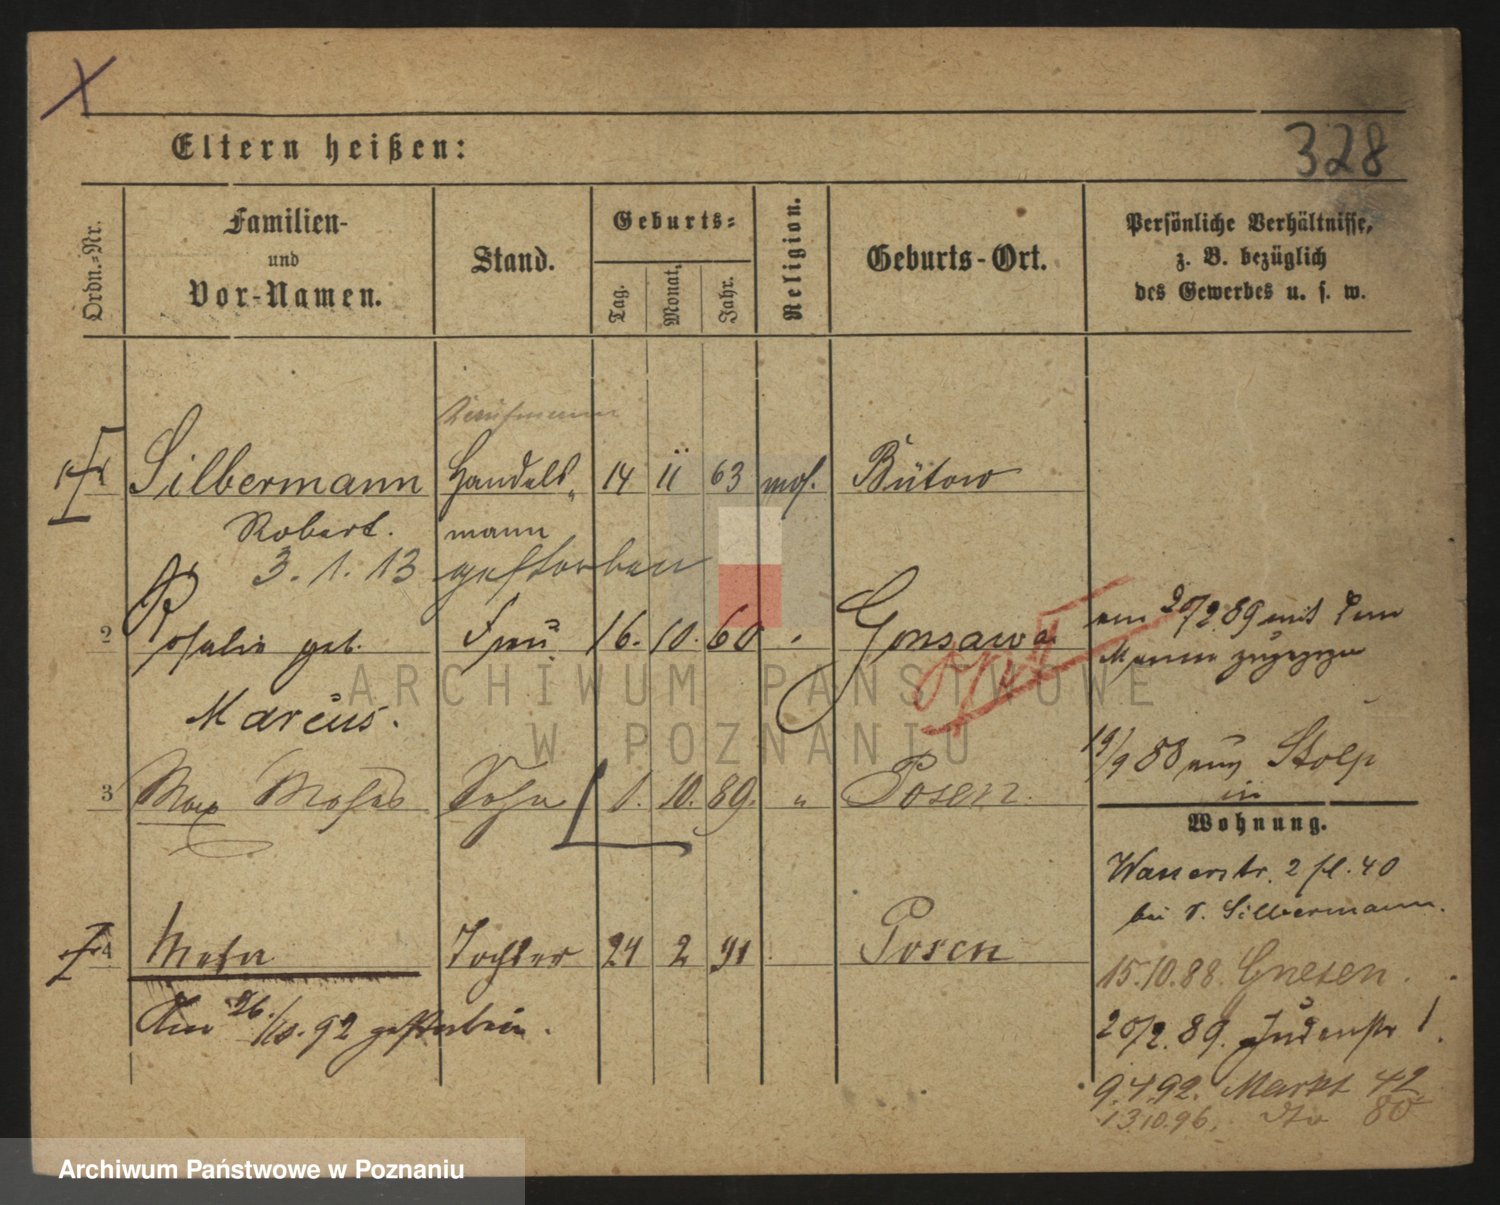 328
Eltern heißen:
Ordn.-Nr.
Familien-
und
Vor-Namen.
Stand.
Geburts-
Tag.
Monat.
Jahr.
Religion.
Geburts-Ort.
Persönliche Verhältnisse,
z. B. bezüglich
des Gewerbes u. s. w.
Kaufmann
1 Silbermann Handels- 14 11 63 mos. Bütow
Robert. mann
3. 1. 13 gestorben
2 Rosalie geb. Frau 16. 10. 60 Gonsawa
Marcus.
am 20/2 89 mit
Manne zugezogen
19/9 88 aus Stolp
3 Max Moses Sohn 1. 10. 89. " Posen
4 Meta Tochter 24 2 91 Posen
Am 26./10. 92 gestorben.
Wohnung.
Wasserstr. 2 pl. 40
bei S. Silbermann.
15.10.88. Gnesen.
20/2. 89. Judenstr 1
9.4.92. Markt 42
13.10.96. dto 80
ARCHIWUM PAŃSTWOWE
W POZNANIU
Archiwum Państwowe w Poznaniu